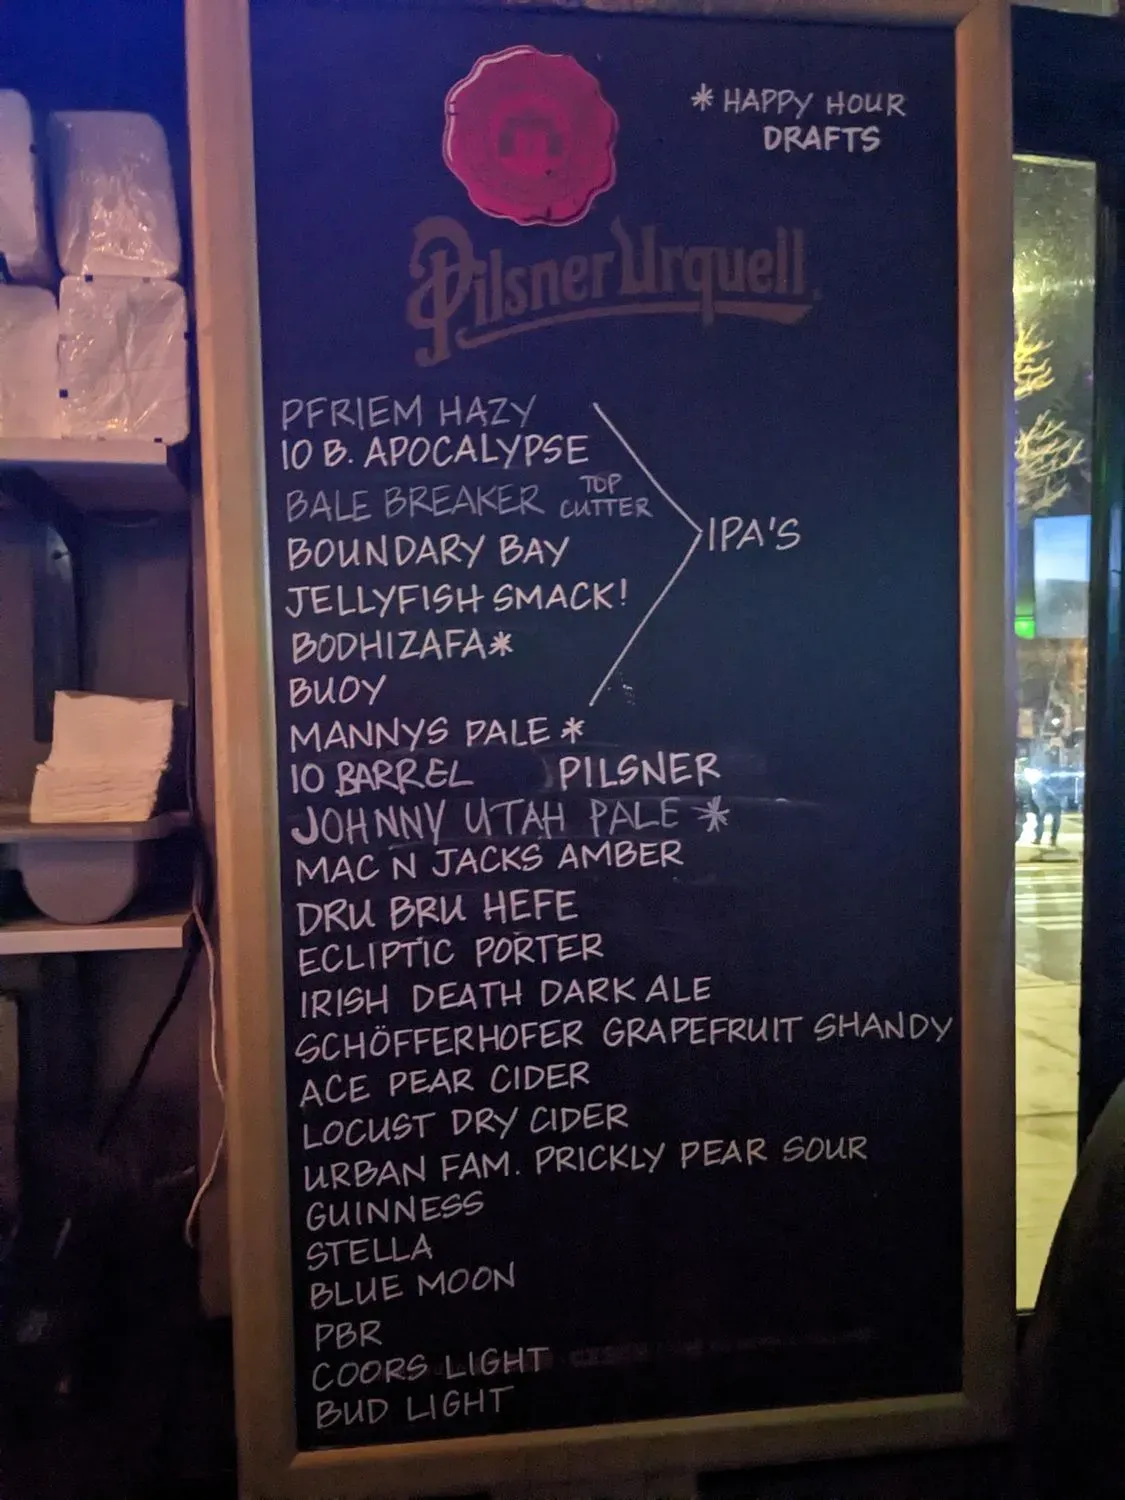 * HAPPY HOUR
DRAFTS
Pilsner Urquell
PFRIEM HAZY
10 B. APOCALYPSE
BALE BREAKER TOP CUTTER
BOUNDARY BAY
IPA'S
JELLYFISH SMACK!
BODHIZAFA*
BUOY
MANNYS PALE *
10 BARREL PILSNER
JOHNNY UTAH PALE *
MAC N JACKS AMBER
DRU BRU HEFE
ECLIPTIC PORTER
IRISH DEATH DARK ALE
SCHÖFFERHOFER GRAPEFRUIT SHANDY
ACE PEAR CIDER
LOCUST DRY CIDER
URBAN FAM. PRICKLY PEAR SOUR
GUINNESS
STELLA
BLUE MOON
PBR
COORS LIGHT
BUD LIGHT